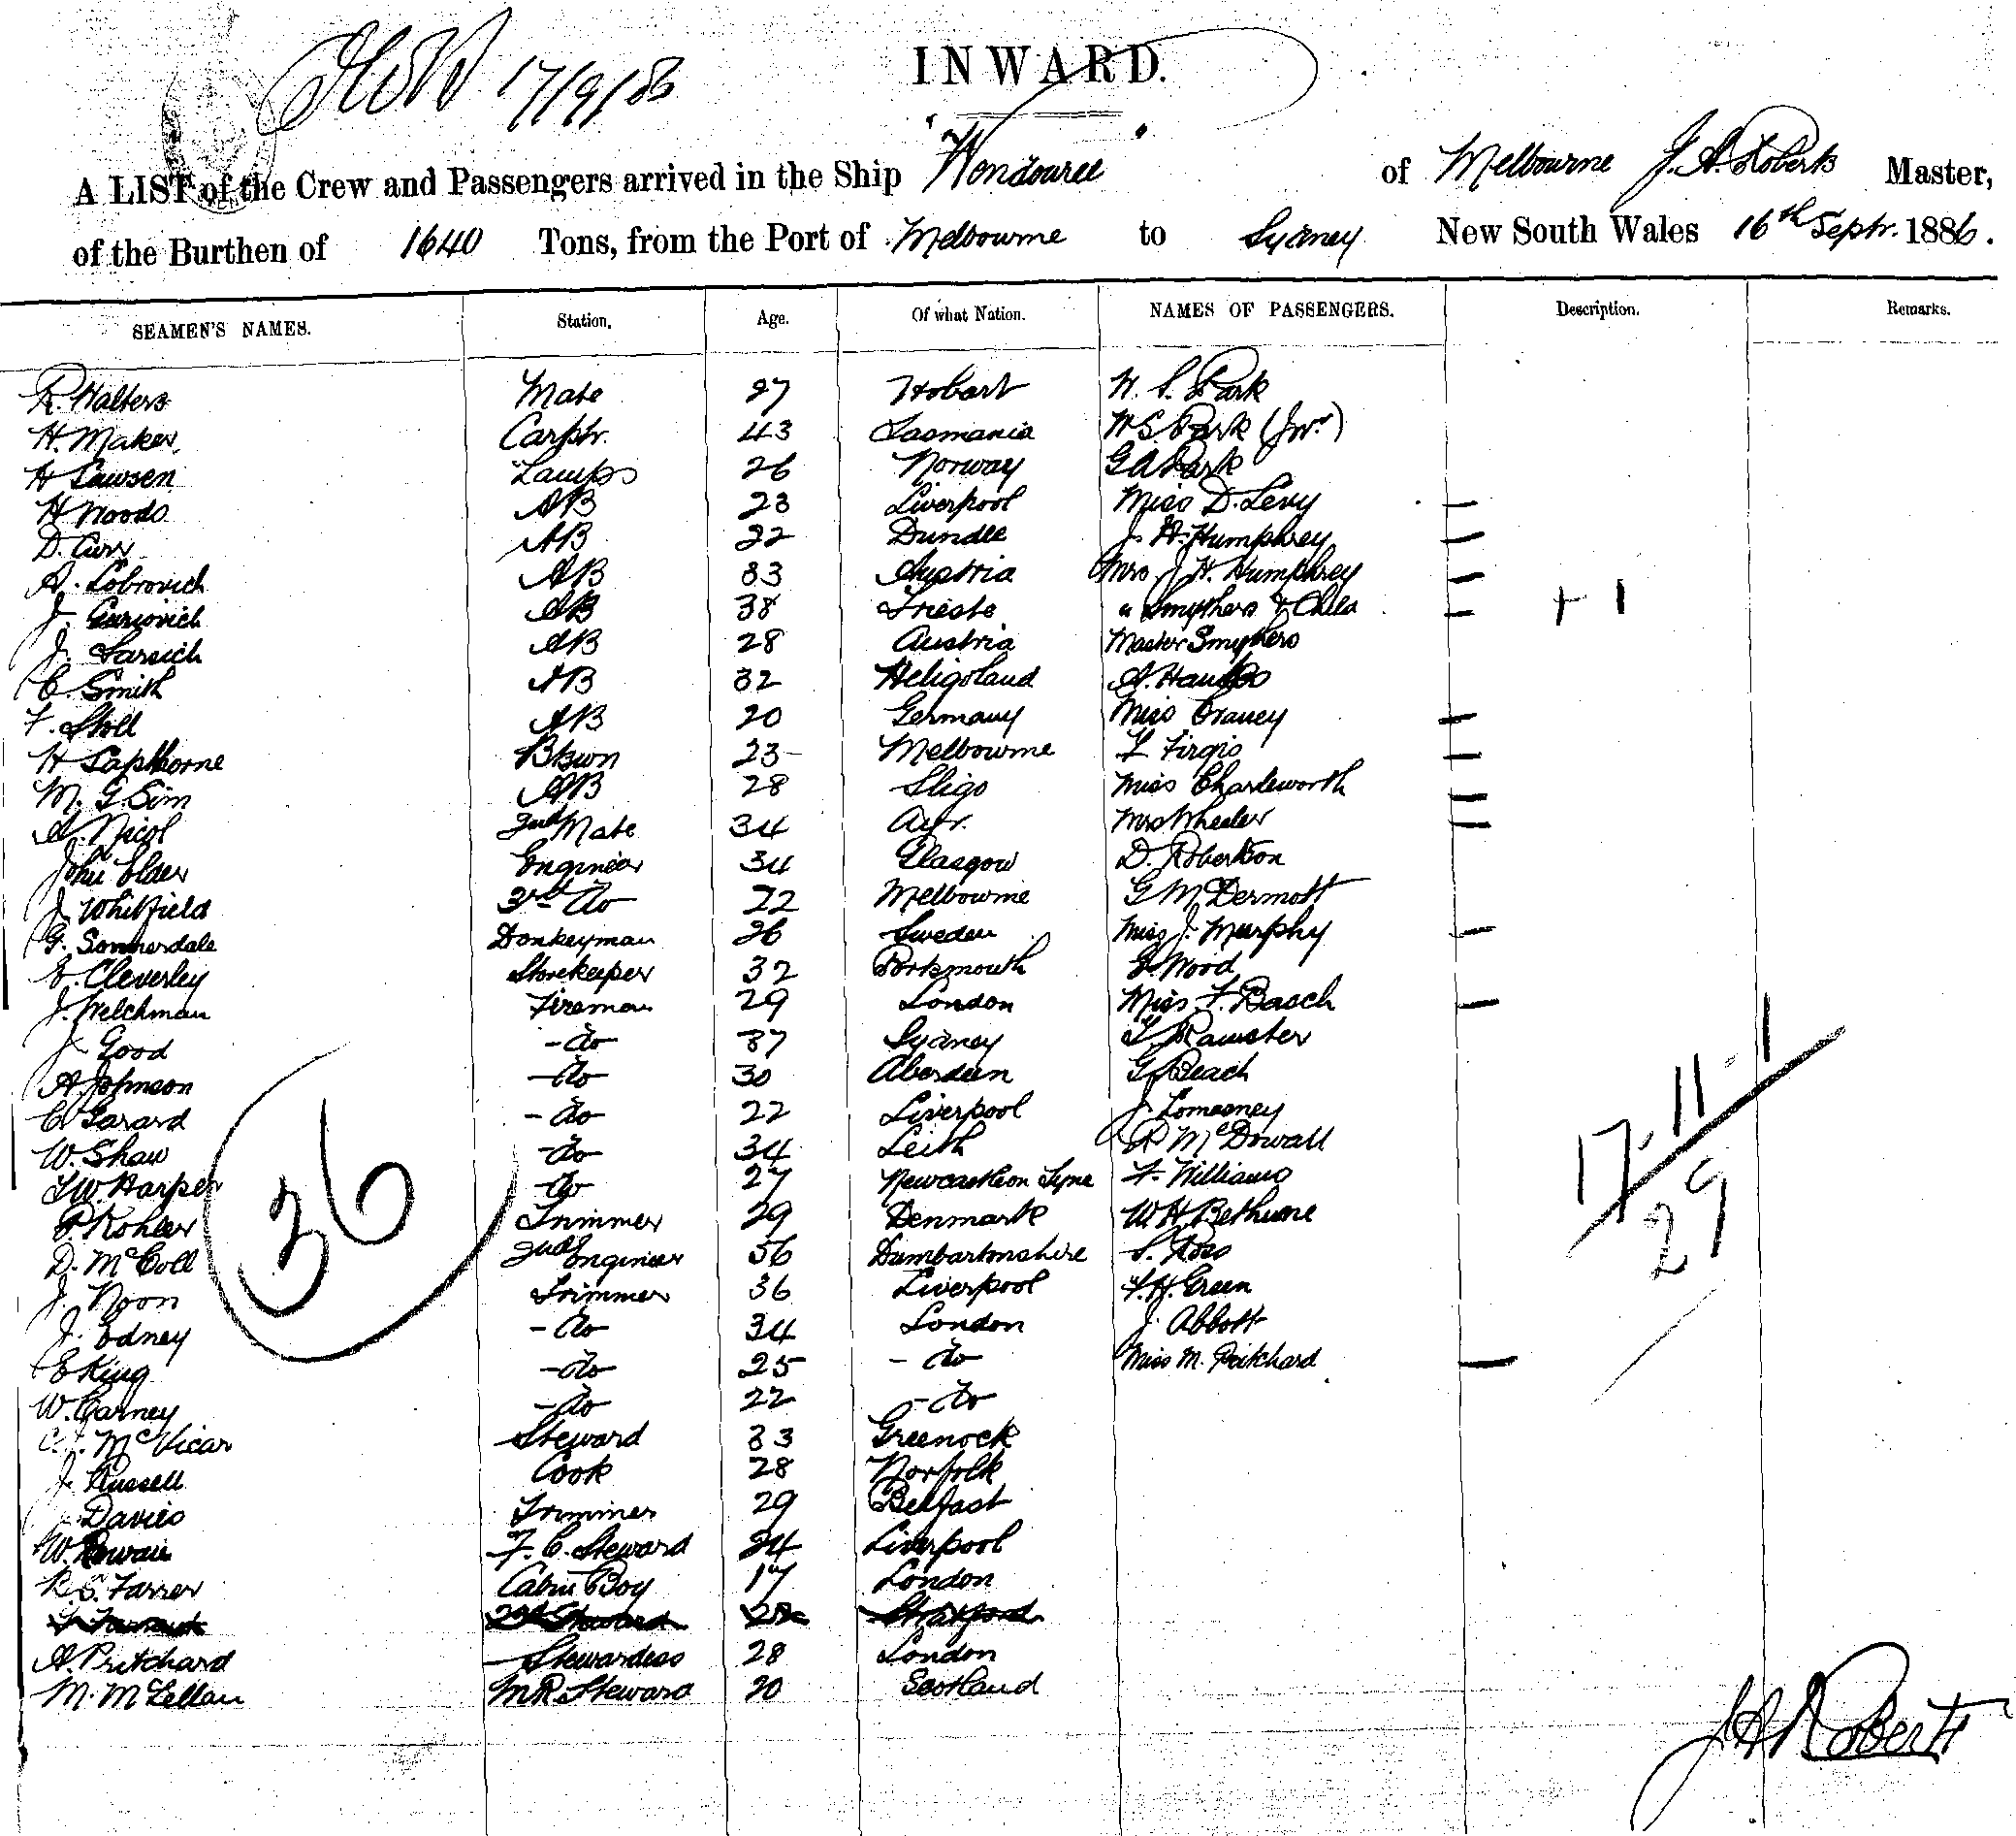 17/9/86
INWARD.
A LIST of the Crew and Passengers arrived in the Ship "Wendouree" of Melbourne J. A. Roberts Master,
of the Burthen of 1640 Tons, from the Port of Melbourne to Sydney New South Wales 16th Septr. 1886.
SEAMEN'S NAMES. Station. Age. Of what Nation. NAMES OF PASSENGERS. Description. Remarks.
R. Walters Mate 27 Hobart W. S. Park
H. Maker Carptr. 43 Tasmania W S. Park (Jnr.)
H Lawsen Lamps 26 Norway G A Park
H Woods AB 23 Liverpool Miss D. Levy —
D. Curr AB 22 Dundee J. H. Humphrey —
A. Lobrovich AB 33 Austria Mrs J. H. Humphrey —
J. AB 38 Trieste " Smythers & Child — + 1
J. Sarsich AB 28 Austria Master Smythers
C. Smith AB 32 Heligoland A.
F. Stoll AB 20 Germany Miss Craney —
H Lapthorne Btswn 23 Melbourne L Firgis —
M. G. Sim AB 28 Sligo Miss Charlesworth —
A. Nicol 2nd Mate 34 Ayr. Mrs Wheeler —
John Elder Engineer 34 Glasgow D. Robertson
J. Whitfield 3rd do 22 Melbourne G McDermott
G. Sonnerdale Donkeyman 26 Sweden Miss J. Murphy —
E. Cleverley Storekeeper 32 Portsmouth G. Wood
J. Welchman Fireman 29 London Miss F. Basch —
J. Good - do 37 Sydney
A Johnson - do 30 Aberdeen G. Beach
C Garard - do 22 Liverpool J. Lomasney
W. Shaw - do 34 Leith R McDowall
T W. Harper - do 27 Newcastle on Tyne F. Williams
P. Kohler Trimmer 29 Denmark W. H. Bethune
D. McColl 2nd Engineer 36 Dumbartonshire S. Ross
J. Noon Trimmer 36 Liverpool F. H. Green
J. Edney - do 34 London J. Abbott
E King - do 25 - do Miss M. Pritchard —
W. Carney - do 22 - do
McVicar Steward 33 Greenock
J. Russell Cook 28 Norfolk
Davies Trimmer 29 Belfast
W. F. C. Steward 24 Liverpool
R. S. Farrer Cabin Boy 17 London
2nd Steward Stratford
A. Pritchard Stewardess 28 London
M. McLellan M R Steward 20 Scotland
36
17. 11. 1
29
J A Roberts